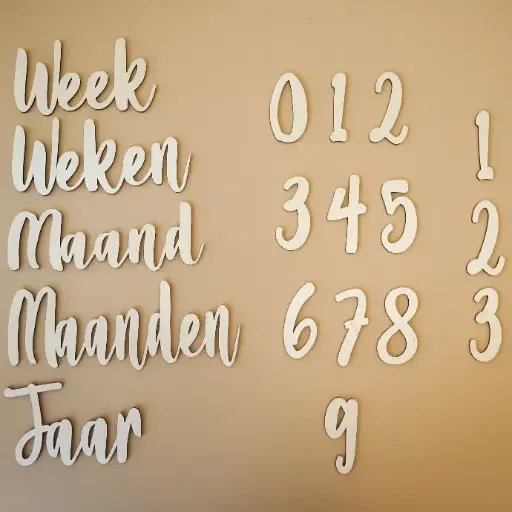 Week
Weken
Maand
Maanden
Jaar
0 1 2
3 4 5
6 7 8
9
1
2
3